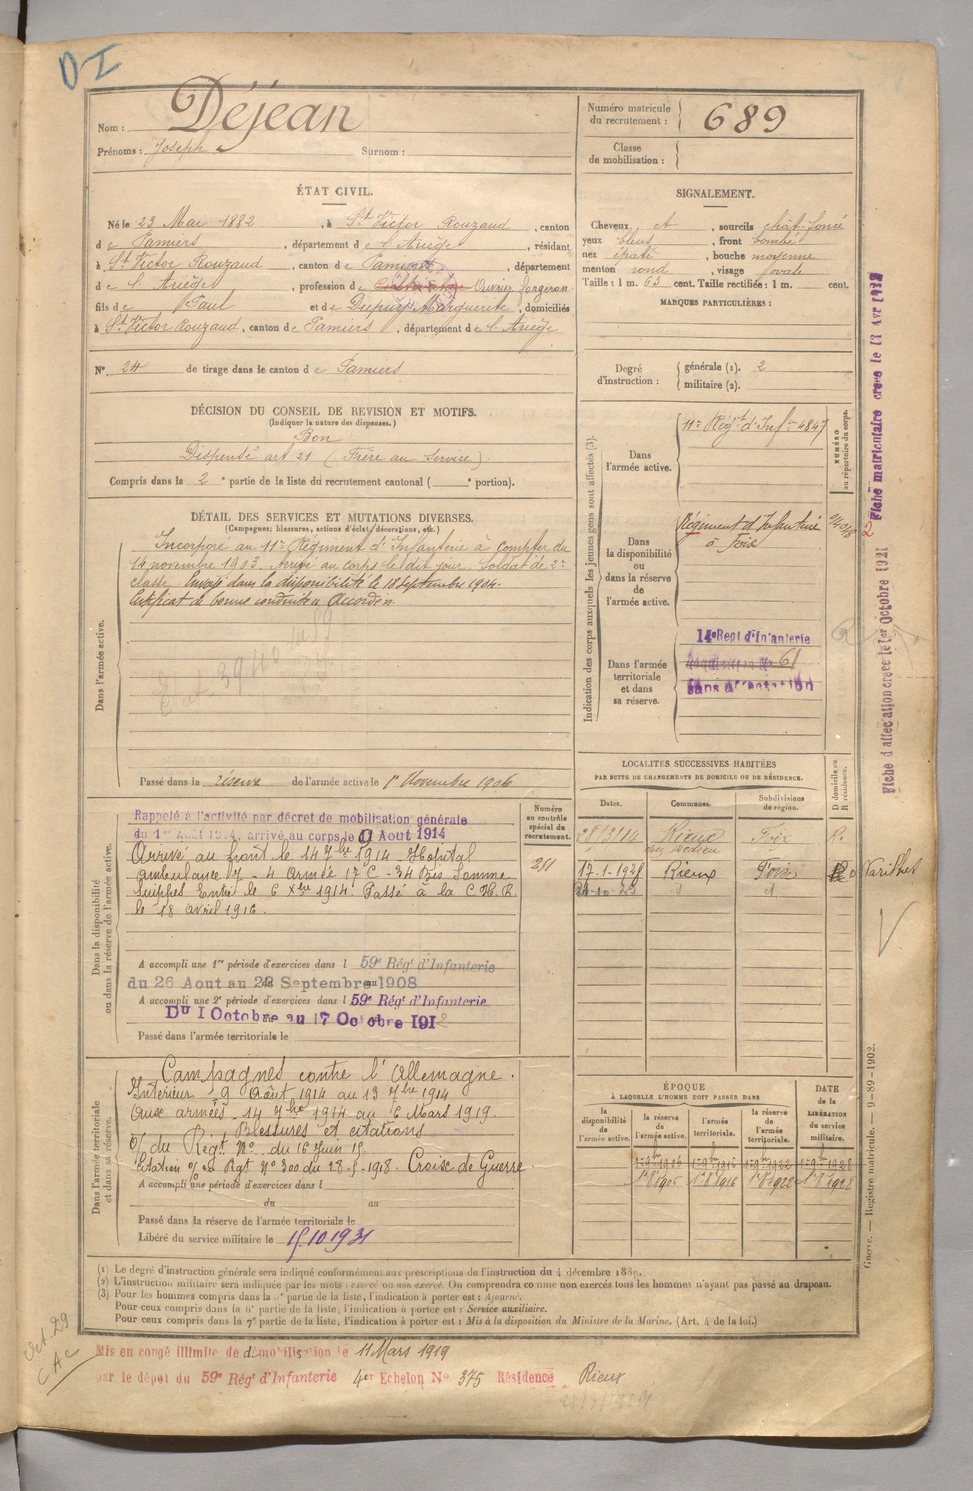 DI
Nom : Déjean
Prénoms : Joseph Surnom :
Numéro matricule du recrutement : 689
Classe de mobilisation :
ÉTAT CIVIL.
Né le 23 Mai 1882, à St Victor Rouzaud, canton
de Pamiers, département de l'Ariège, résidant
à St Victor Rouzaud, canton de Pamiers, département
de l'Ariège, profession de Ouvrier forgeron
fils de Paul et de Dupuy Marguerite, domiciliés
à St Victor Rouzaud, canton de Pamiers, département de l'Ariège
N° 24 de tirage dans le canton de Pamiers
SIGNALEMENT.
Cheveux et, sourcils chât. foncé
yeux bleus, front bombé
nez épaté, bouche moyenne
menton rond, visage ovale
Taille : 1 m. 63 cent. Taille rectifiée : 1 m. cent.
MARQUES PARTICULIÈRES :
Degré d'instruction : générale (1). 2
militaire (2).
DÉCISION DU CONSEIL DE REVISION ET MOTIFS.
(Indiquer la nature des dispenses.)
Bon
Dispensé art 21 (Frère au Service)
Compris dans la 2e partie de la liste du recrutement cantonal ( e portion).
DÉTAIL DES SERVICES ET MUTATIONS DIVERSES.
(Campagnes; blessures, actions d'éclat, décorations, etc.)
Dans l'armée active.
Incorporé au 11e Régiment d'Infanterie à compter du
14 novembre 1903. Arrivé au corps le dit jour. Soldat de 2e
classe. Envoyé dans la disponibilité le 18 septembre 1904.
Certificat de bonne conduite Accordé.
Passé dans la réserve de l'armée active le 1er Novembre 1906
Indication des corps auxquels les jeunes gens sont affectés (3).
NUMÉRO au répertoire du corps.
Dans l'armée active.
11e Régt d'Infie 4847
Dans la disponibilité ou dans la réserve de l'armée active.
Régiment d'Infanterie
à Foix
Dans l'armée territoriale et dans sa réserve.
14e Regt d'Infanterie
61
sans affectation
Fiche matriculaire créée le 13 Avr 1922
Fiche d'affectation créée le 1er Octobre 1921
Dans la disponibilité ou dans la réserve de l'armée active.
Numéro au contrôle spécial du recrutement.
251
Rappelé à l'activité par décret de mobilisation générale
du 1er Août 1914, arrivé au corps le 9 Aout 1914
Arrivé au front le 14 7bre 1914 - Hopital
ambulance 7 - 4 Armée 17 C - 34 Bis Somme
Suippes Entré le 6 Xbre 1914. Passé à la C.H.R.
le 18 avril 1916.
A accompli une 1re période d'exercices dans l 59e Régt d'Infanterie
du 26 Aout au 22 Septembre 1908
A accompli une 2e période d'exercices dans l 59e Régt d'Infanterie
Du 1 Octobre au 17 Octobre 1912
Passé dans l'armée territoriale le
LOCALITÉS SUCCESSIVES HABITÉES
PAR SUITE DE CHANGEMENTS DE DOMICILE OU DE RÉSIDENCE.
Dates. Commune. Subdivisions de région. D domicile ou R résidence.
28/3/14 Rieux Foix R.
17-1-1925 Rieux Foix D Varilhes
Dans l'armée territoriale et dans sa réserve.
Campagnes contre l'Allemagne.
Intérieur 9 Août 1914 au 13 7bre 1914
Aux armées - 14 7bre 1914 au 6 Mars 1919.
Blessures et citations
O/ du Régt N° du 16 Juin 15
Citation O/ du Regt N° 300 du 28-5-1918. Croix de Guerre.
A accompli une période d'exercices dans l
du au
Passé dans la réserve de l'armée territoriale le
Libéré du service militaire le 15.10.1931
ÉPOQUE
À LAQUELLE L'HOMME DOIT PASSER DANS
la disponibilité de l'armée active.
la réserve de l'armée active.
l'armée territoriale.
la réserve de l'armée territoriale.
DATE de la LIBÉRATION du service militaire.
1er 9bre 1906 1er 9bre 1916 1er 9bre 1922 1er 9bre 1928
Guerre. — Registre matricule. — 9-89-1902.
(1) Le degré d'instruction générale sera indiqué conformément aux prescriptions de l'instruction du 4 décembre 1889.
(2) L'instruction militaire sera indiquée par les mots : exercé ou non exercé. On comprendra comme non exercés tous les hommes n'ayant pas passé au drapeau.
(3) Pour les hommes compris dans la 5e partie de la liste, l'indication à porter est : Ajourné.
Pour ceux compris dans la 6e partie de la liste, l'indication à porter est : Service auxiliaire.
Pour ceux compris dans la 7e partie de la liste, l'indication à porter est : Mis à la disposition du Ministre de la Marine. (Art. 4 de la loi.)
Oct. 29
CAC
Mis en congé illimité de démobilisation le 11 Mars 1919
par le dépot du 59e Régt d'Infanterie 4er Echelon No 375 Résidence Rieux